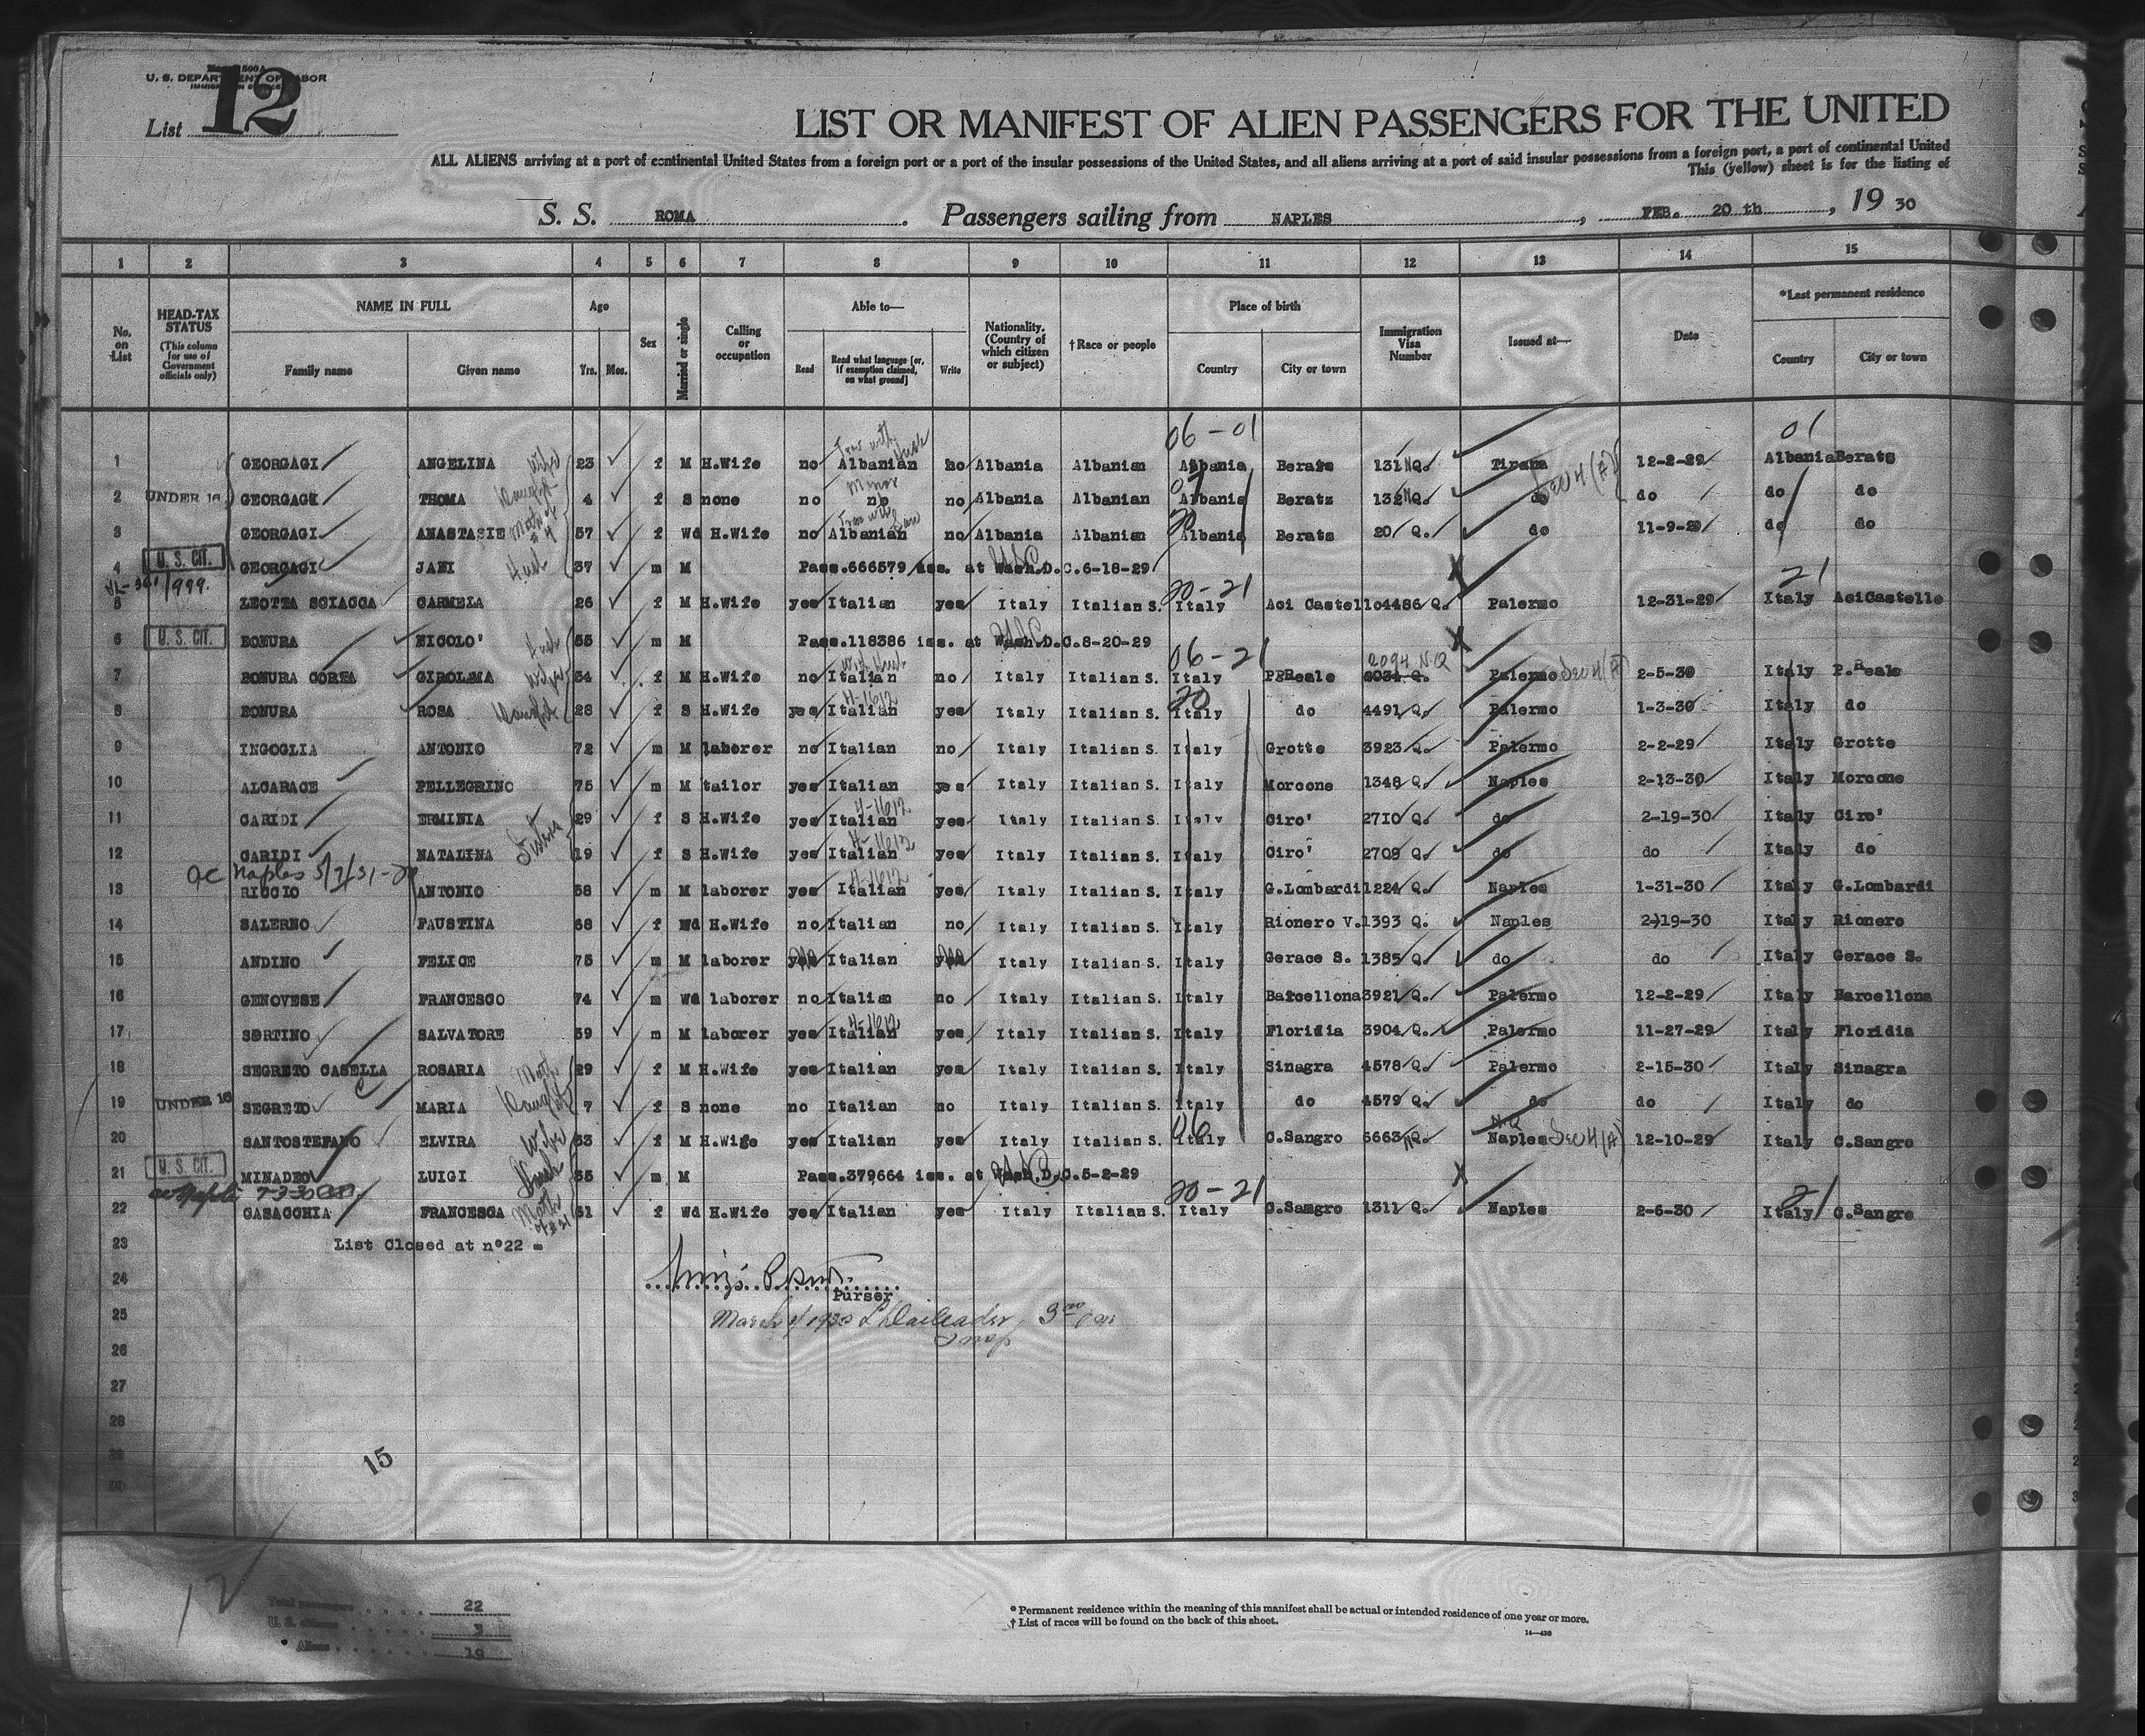 U. S. DEPARTMENT OF LABOR
List 12
LIST OR MANIFEST OF ALIEN PASSENGERS FOR THE UNITED
ALL ALIENS arriving at a port of continental United States from a foreign port or a port of the insular possessions of the United States, and all aliens arriving at a port of said insular possessions from a foreign port, a port of continental United
This (yellow) sheet is for the listing of
S. S. ROMA. Passengers sailing from NAPLES, FEB. 20 th, 19 30
1 2 3 4 5 6 7 8 9 10 11 12 13 14 15
No. on List HEAD-TAX STATUS (This column for use of Government officials only) NAME IN FULL Family name Given name Age Yrs. Mos. Sex Married or single Calling or occupation Able to— Read Read what language [or, if exemption claimed, on what ground] Write Nationality. (Country of which citizen or subject) †Race or people Place of birth Country City or town Immigration Visa Number Issued at— Date *Last permanent residence Country City or town
06-01 01
1 GEORGAGI ANGELINA Wife 23 f M H.Wife no Albanian no Albania Albanian Albania Berats 131 NQ. Tirana 12-2-29 Albania Berats
2 UNDER 16 GEORGAGI THOMA Daught 4 f S none no Minor no no Albania Albanian Albania Berats 132 NQ. do Sec 4 (A) do do do
3 GEORGAGI ANASTASIE Moth of #4 57 f Wd H.Wife no Albanian no Albania Albanian Albania Berats 20 Q. do 11-9-29 do do
4 U. S. CIT. GEORGAGI JANI Husb 37 m M Pass.666579 iss. at Wash.D.C.6-18-29
20-21 21
5 LEOTTA SCIACCA CARMELA 26 f M H.Wife yes Italian yes Italy Italian S. Italy Aci Castello 4486 Q. Palermo 12-31-29 Italy AciCastello
6 U. S. CIT. BONURA NICOLO' Husb 55 m M Pass.118386 iss. at Wash.D.C.8-20-29
06-21 2094 NQ
7 BONURA CORTA GIROLAMA Wife 54 f M H.Wife no Italian no Italy Italian S. Italy P.Reale Palermo Sec 4 (A) 2-5-30 Italy P.Reale
8 BONURA ROSA Daught 28 f S H.Wife yes Italian yes Italy Italian S. Italy do 4491 Q. Palermo 1-3-30 Italy do
9 INGOGLIA ANTONIO 72 m M laborer no Italian no Italy Italian S. Italy Grotte 3923 Q. Palermo 2-2-29 Italy Grotte
10 ALCARACE PELLEGRINO 75 m M tailor yes Italian yes Italy Italian S. Italy Morcone 1348 Q. Naples 2-13-30 Italy Morcone
11 CARIDI ERMINIA 29 f S H.Wife yes Italian yes Italy Italian S. Italy Ciro' 2710 Q. do 2-19-30 Italy Ciro'
12 CARIDI NATALINA Sisters 19 f S H.Wife yes Italian yes Italy Italian S. Italy Ciro' 2709 Q. do do Italy do
13 RICCIO ANTONIO 58 m M laborer yes Italian yes Italy Italian S. Italy G.Lombardi 1224 Q. Naples 1-31-30 Italy G.Lombardi
14 SALERNO FAUSTINA 68 f Wd H.Wife no Italian no Italy Italian S. Italy Rionero V. 1393 Q. Naples 2-19-30 Italy Rionero
15 ANDINO FELICE 75 m M laborer no Italian no Italy Italian S. Italy Gerace S. 1385 Q. do do Italy Gerace S.
16 GENOVESE FRANCESCO 74 m Wd laborer no Italian no Italy Italian S. Italy Barcellona 3921 Q. Palermo 12-2-29 Italy Barcellona
17 SORTINO SALVATORE 59 m M laborer yes Italian yes Italy Italian S. Italy Floridia 3904 Q. Palermo 11-27-29 Italy Floridia
18 SEGRETO CASELLA ROSARIA Moth 29 f M H.Wife yes Italian yes Italy Italian S. Italy Sinagra 4578 Q. Palermo 2-15-30 Italy Sinagra
19 UNDER 16 SEGRETO MARIA Daught 7 f S none no Italian no Italy Italian S. Italy do 4579 Q. do do Italy do
20 SANTOSTEFANO ELVIRA Wife 33 f M H.Wife yes Italian yes Italy Italian S. Italy C.Sangro 6663 NQ. Naples Sec 4 (A) 12-10-29 Italy C.Sangro
21 U. S. CIT. MINADEO LUIGI Husb 35 m M Pass.379664 iss. at Wash.D.C.5-2-29
20-21 21
22 CASACCHIA FRANCESCA Moth of #21 51 f Wd H.Wife yes Italian yes Italy Italian S. Italy C.Sangro 1311 Q. Naples 2-6-30 Italy C.Sangro
23 List Closed at n°22 =
24 Purser
25 March 1 1930
26
27
28
29
30
15
12
Total passengers 22
U. S. citizens 3
Aliens 19
* Permanent residence within the meaning of this manifest shall be actual or intended residence of one year or more.
† List of races will be found on the back of this sheet.
14—430